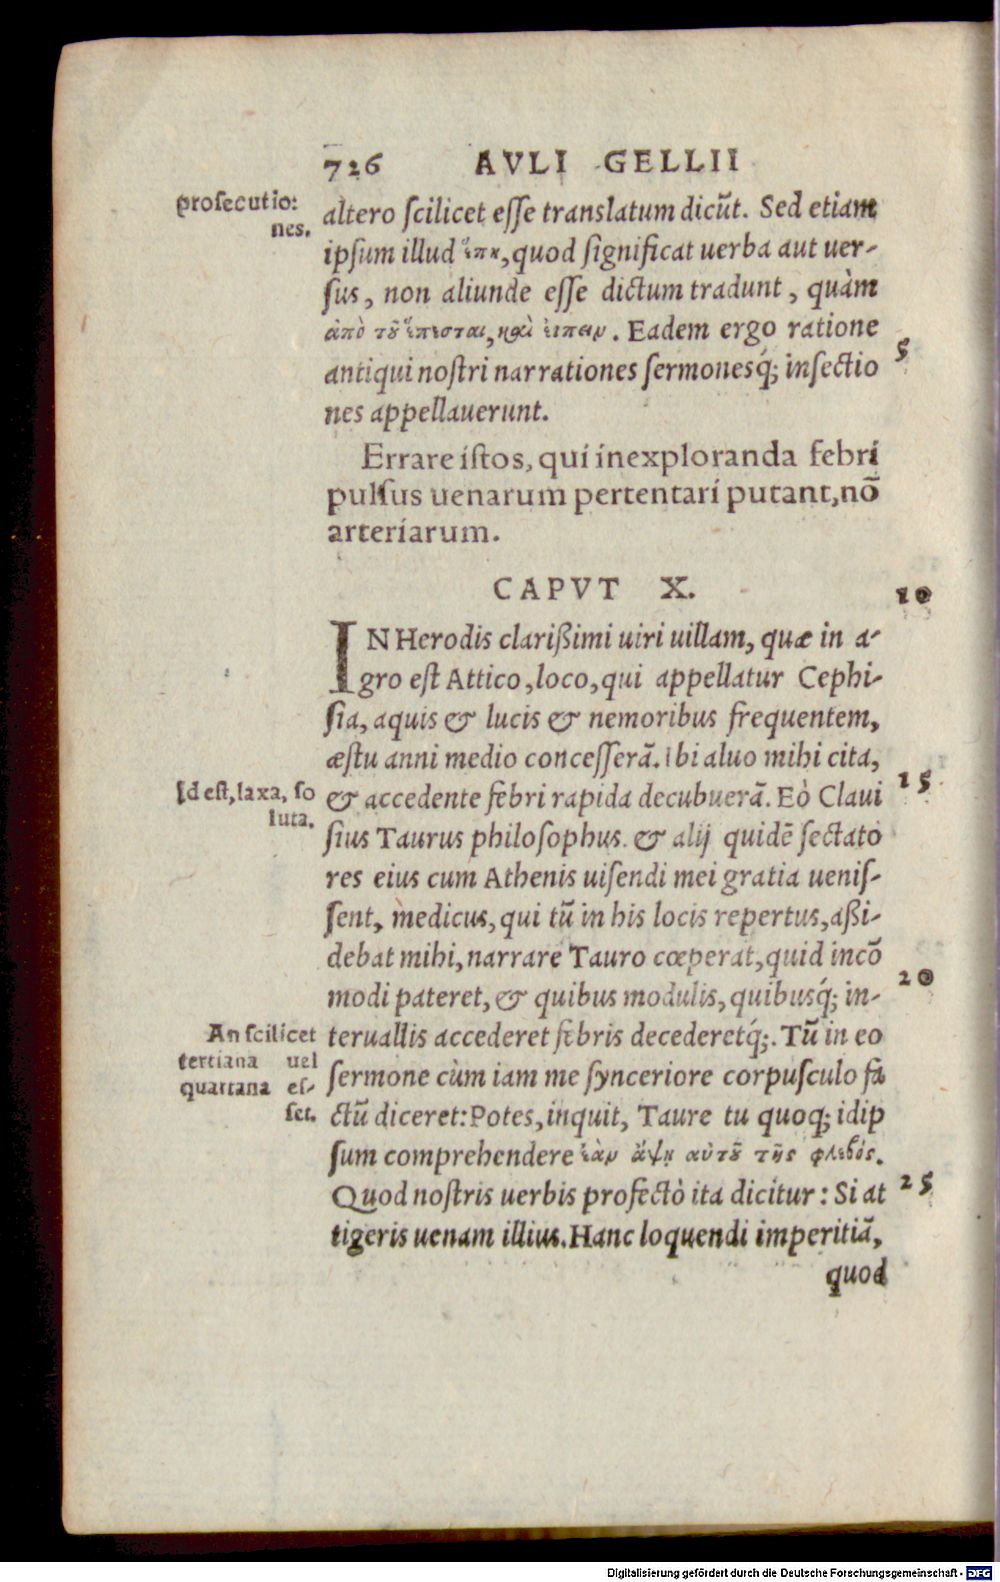 726 AVLI GELLII
prosecutio:
nes.
altero scilicet esse translatum dicũt. Sed etiam
ipsum illud ἔπη, quod significat uerba aut uer-
sus, non aliunde esse dictum tradunt, quàm
ἀπὸ τοῦ ἕπεσται, καὶ εἰπεῖν. Eadem ergo ratione
5
antiqui nostri narrationes sermonesq́; insectio
nes appellauerunt.
Errare istos, qui in exploranda febri
pulsus uenarum pertentari putant, nō
arteriarum.
CAPVT X.
10
IN Herodis clarißimi uiri uillam, quæ in a-
gro est Attico, loco, qui appellatur Cephi-
sia, aquis & lucis & nemoribus frequentem,
æstu anni medio concesserā. Ibi aluo mihi cita,
15
Id est, laxa, so
luta.
& accedente febri rapida decubuerā. Eò Claui
sius Taurus philosophus. & alij quidē sectato
res eius cum Athenis uisendi mei gratia uenis-
sent, medicus, qui tū in his locis repertus, aßi-
debat mihi, narrare Tauro cœperat, quid incō
20
modi pateret, & quibus modulis, quibusq́; in-
An scilicet
tertiana uel
quartana es-
set.
teruallis accederet febris decederetq́;. Tū in eo
sermone cùm iam me synceriore corpusculo fa
ctū diceret: Potes, inquit, Taure tu quoq; idip
sum comprehendere ἐὰν ἅψῃ αὐτοῦ τῆς φλεβός.
25
Quod nostris uerbis profectò ita dicitur: Si at
tigeris uenam illius. Hanc loquendi imperitiā,
quod
Digitalisierung gefördert durch die Deutsche Forschungsgemeinschaft - DFG